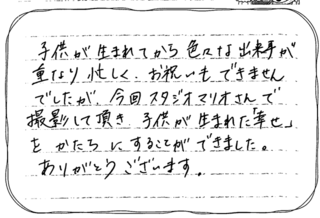 子供が生まれてから色々な出来事が
重なり忙しく、お祝いもできません
でしたが、今回スタジオマリオさんで
撮影して頂き子供が生まれた「幸せ」
をかたちにすることができました。
ありがとうございます。